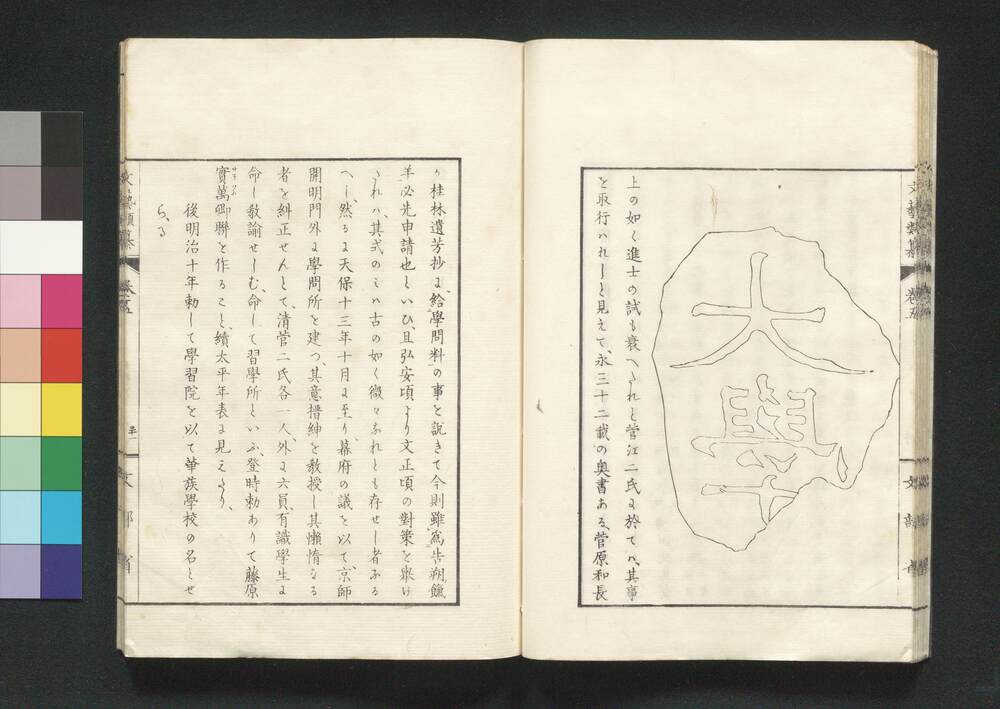 大學
上の如く進士の試も衰へたれと菅江二氏に於てハ其事
を取行ハれしと見えて、永三十二載の奥書ある、菅原和長
の桂林遺芳抄に、給學問料の事を説きて今則雖爲告朔餼
羊必先申請也といひ、且弘安頃より文正頃の對策を擧け
たれハ、其式のミハ古の如く微々なれとも存せし者なる
へし、然るに天保十三年十月に至り、幕府の議を以て、京師
開明門外に學問所を建つ、其意搢紳を教授し其懶惰なる
者を糾正せんとて、清菅二氏各一人、外に六員、有識學生に
命し教諭せしむ、命して習學所といふ、登時勅ありて藤原
實萬卿聯を作ること續太平年表に見えたり、
後明治十年勅して學習院を以て華族學校の名とせ
らる
文部省